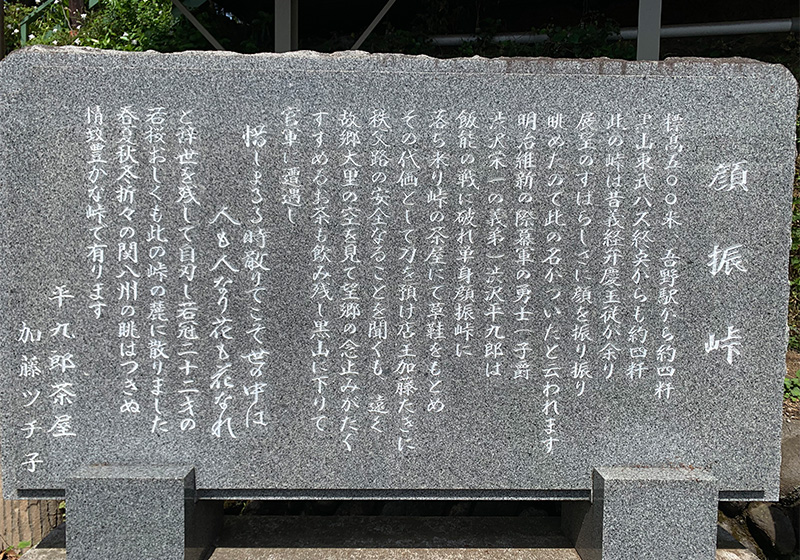 顔振峠
標高五〇〇米 吾野駅から約四粁
黒山東武バス終点からも約四粁
此の峠は昔義経弁慶主従が余り
展望のすばらしさに顔を振り振り
眺めたので此の名がついたと云われます
明治維新の際幕軍の勇士(子爵
渋沢栄一の義弟)渋沢平九郎は
飯能の戦に破れ単身顔振峠に
落ち来り峠の茶屋にて草鞋をもとめ
その代価として刀を預け店主加藤たきに
秩父路の安全なることを聞くも、遠く
故郷大里の空を見て望郷の念止みがたく
すすめるお茶も飲み残し黒山に下りて
官軍に遭遇し
惜しまるる時散りてこそ世の中は
人も人なり花も花なれ
と辞世を残して自刃し若冠二十二才の
若桜おしくも此の峠の麓に散りました
春夏秋冬折々の関八州の眺はつきぬ
情致豊かな峠で有ります
平九郎茶屋
加藤ツチ子